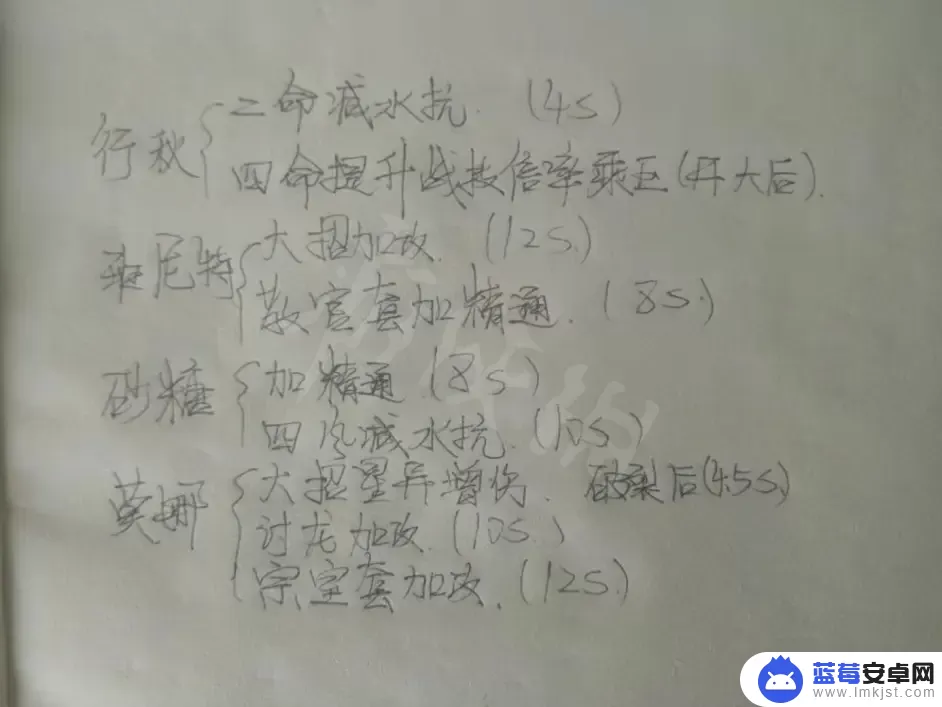 行秋
二命减水抗.(4s)
四命提升战技倍率乘区(开大后).
班尼特
大招加攻.(12s.)
教官套加精通.(8s.)
砂糖
加精通(8s)
四风减水抗.(10s)
莫娜
大招星异增伤.破裂后(4.5s.)
讨龙加攻.(10s.)
宗室套加攻.(12s.)
蓝莓安卓网
www.lmkjst.com